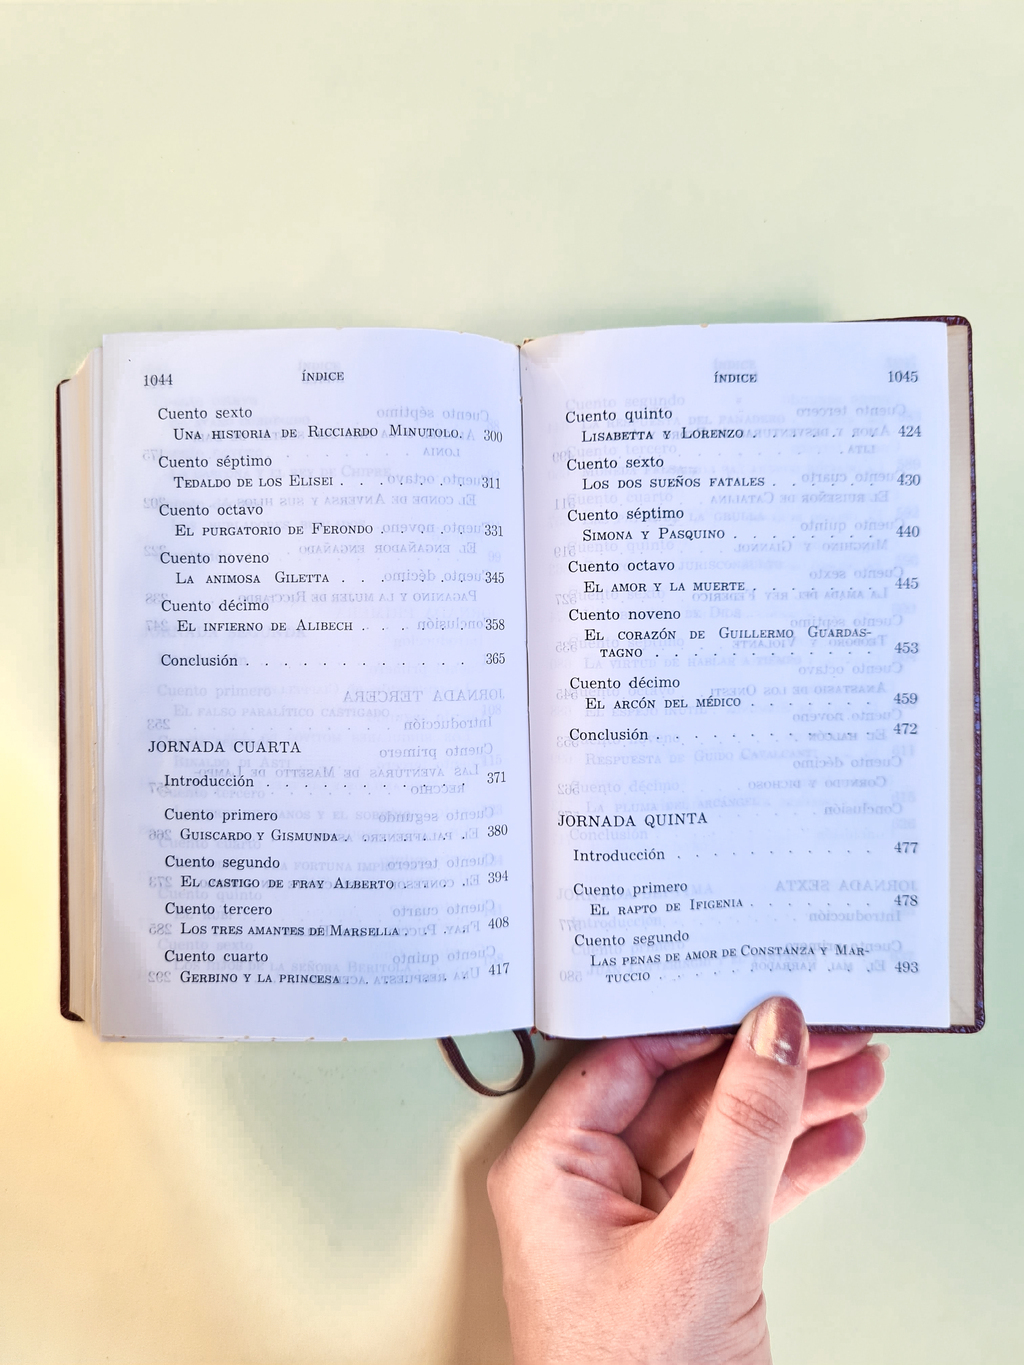 1044 ÍNDICE
Cuento sexto
UNA HISTORIA DE RICCIARDO MINUTOLO. 300
Cuento séptimo
TEDALDO DE LOS ELISEI . . . . . . . 311
Cuento octavo
EL PURGATORIO DE FERONDO . . . . . 331
Cuento noveno
LA ANIMOSA GILETTA . . . . . . . 345
Cuento décimo
EL INFIERNO DE ALIBECH . . . . . . 358
Conclusión . . . . . . . . . . . . 365
JORNADA CUARTA
Introducción . . . . . . . . . . . 371
Cuento primero
GUISCARDO Y GISMUNDA . . . . . . . 380
Cuento segundo
EL CASTIGO DE FRAY ALBERTO . . . . 394
Cuento tercero
LOS TRES AMANTES DE MARSELLA . . . . 408
Cuento cuarto
GERBINO Y LA PRINCESA . . . . . . . 417
ÍNDICE 1045
Cuento quinto
LISABETTA Y LORENZO . . . . . . . 424
Cuento sexto
LOS DOS SUEÑOS FATALES . . . . . . 430
Cuento séptimo
SIMONA Y PASQUINO . . . . . . . . 440
Cuento octavo
EL AMOR Y LA MUERTE . . . . . . . 445
Cuento noveno
EL CORAZÓN DE GUILLERMO GUARDAS-
TAGNO . . . . . . . . . . . . 453
Cuento décimo
EL ARCÓN DEL MÉDICO . . . . . . . 459
Conclusión . . . . . . . . . . . . 472
JORNADA QUINTA
Introducción . . . . . . . . . . . 477
Cuento primero
EL RAPTO DE IFIGENIA . . . . . . . 478
Cuento segundo
LAS PENAS DE AMOR DE CONSTANZA Y MAR-
TUCCIO . . . . . . . . . . . . 493